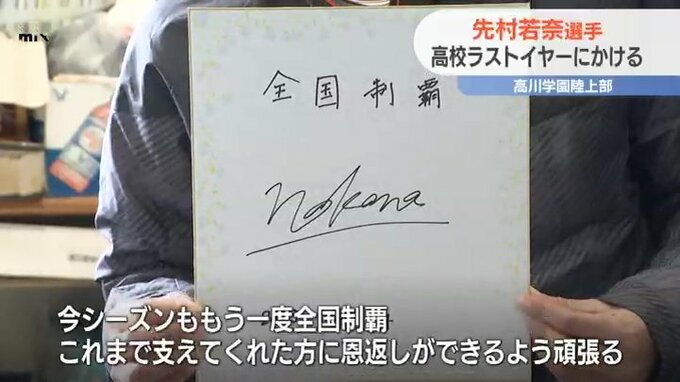 mix
先村若奈選手
高校ラストイヤーにかける
高川学園陸上部
全国制覇
今シーズンももう一度全国制覇
これまで支えてくれた方に恩返しができるよう頑張る